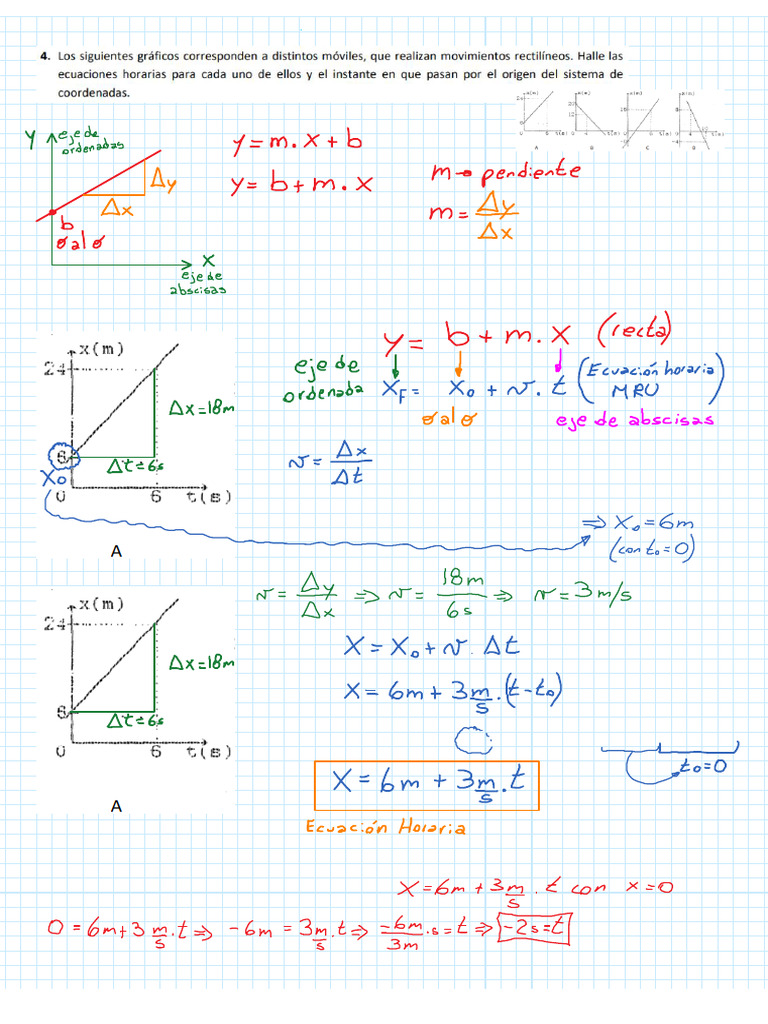 4. Los siguientes gráficos corresponden a distintos móviles, que realizan movimientos rectilíneos. Halle las
ecuaciones horarias para cada uno de ellos y el instante en que pasan por el origen del sistema de
coordenadas.
A B C
Y
eje de
ordenadas
Δy
Δx
b
σ al σ
X
eje de
abscisas
y = m. x + b
y = b + m. x
m → pendiente
m = Δy/Δx
y = b + m. x (recta)
eje de
ordenada
X_F = X₀ + v. t (Ecuación horaria
MRU)
σ al σ
eje de abscisas
v = Δx/Δt
x(m)
24
Δx = 18m
6
Δt = 6s
X₀
0 6 t(s)
A
⇒ X₀ = 6m
(con t₀ = 0)
v = Δy/Δx ⇒ v = 18m/6s ⇒ v = 3 m/s
X = X₀ + v. Δt
X = 6m + 3 m/s .(t - t₀)
t₀ = 0
X = 6m + 3 m/s . t
Ecuación Horaria
x(m)
24
Δx = 18m
6
Δt = 6s
0 6 t(s)
A
X = 6m + 3 m/s . t con x = 0
0 = 6m + 3 m/s . t ⇒ -6m = 3 m/s . t ⇒ -6m/3m .s = t ⇒ -2s = t